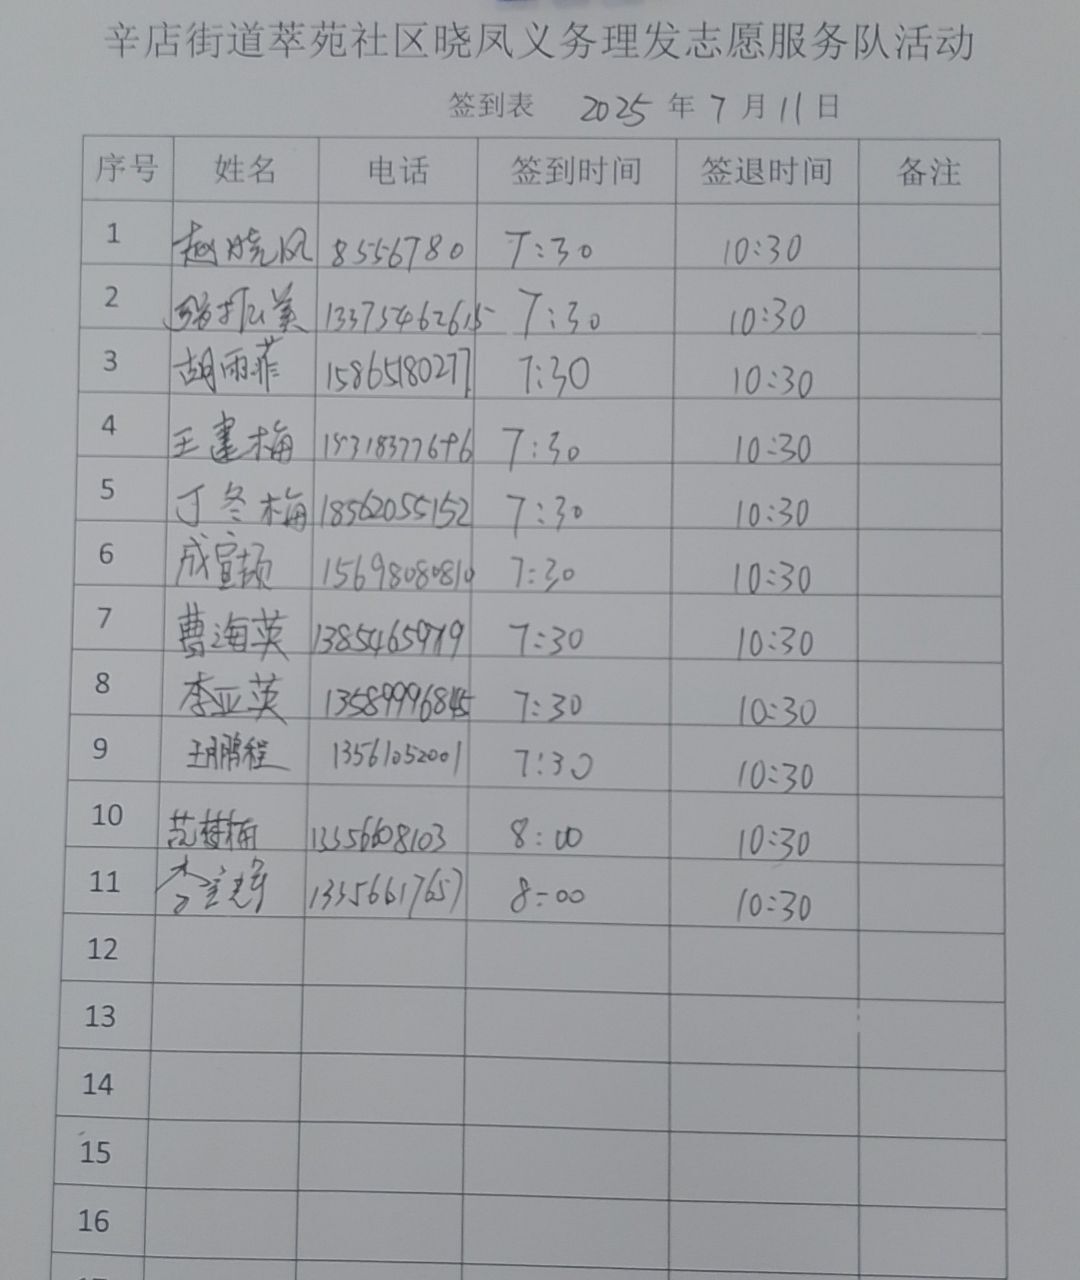 辛店街道萃苑社区晓凤义务理发志愿服务队活动
签到表 2025年7月11日
序号 姓名 电话 签到时间 签退时间 备注
1 赵晓凤 8556780 7:30 10:30
2 美 13375462615 7:30 10:30
3 胡雨菲 15865180277 7:30 10:30
4 王建梅 7:30 10:30
5 丁冬梅 18562055152 7:30 10:30
6 成宣 15698080810 7:30 10:30
7 曹海英 7:30 10:30
8 李亚英 7:30 10:30
9 王鹏程 13561052001 7:30 10:30
10 范 梅 13356608103 8:00 10:30
11 李 13356617657 8:00 10:30
12
13
14
15
16